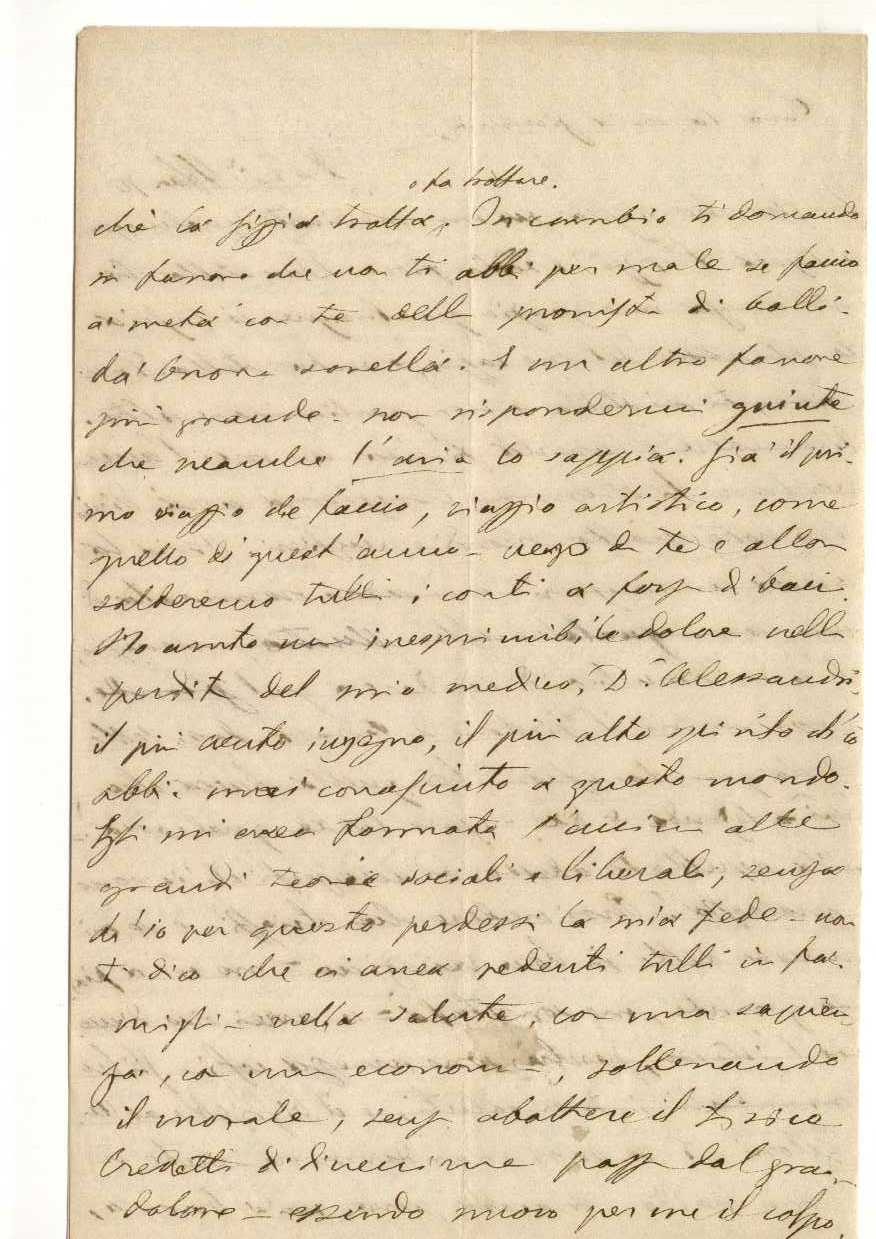 o fa trottare.
chè la zizzia trotta. In cambio ti domando
un favore che non ti abbi per male se faccio
a metà con te della provvista di
da buona sorella. E un altro favore
più grande - non rispondermi niente
che neanche l'aria lo sappia. Già il pri-
mo viaggio che faccio, viaggio artistico, come
quello di quest'anno - vengo da te e allora
salderemo tutti i conti a forza di baci.
Ho avuto un inesprimibile dolore nella
perdita del mio medico, Dr. Alessandri,
il più acuto ingegno, il più alto spirito ch'io
abbia mai conosciuto a questo mondo.
Egli mi aveva formata l'anima alle
grandi teorie sociali e liberali, senza
ch'io per questo perdessi la mia fede - non
ti dico che ci aveva redenti tutti in fa-
miglia nella salute, con una sapien-
za, con una economia, sollevando
il morale, senza abattere il fisico
Credetti di divenirne pazza dal gran
dolore - essendo nuovo per me il colpo,